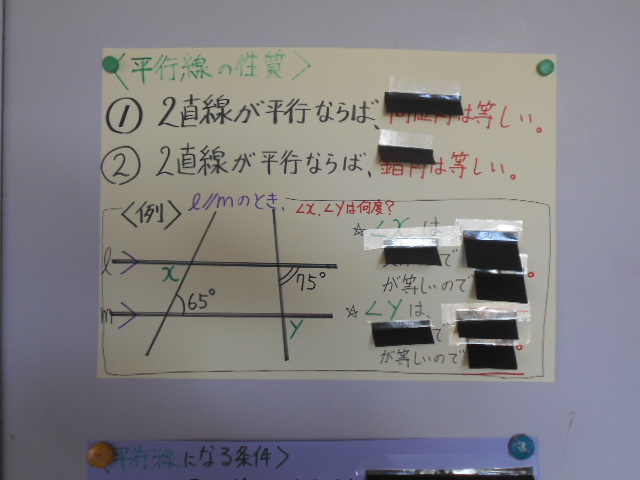 〈平行線の性質〉
① 2直線が平行ならば、同位角は等しい。
② 2直線が平行ならば、錯角は等しい。
〈例〉 l//mのとき、∠x,∠yは何度?
☆∠xは
l
x
75°
で
が等しいので
。
m
65°
y
☆∠yは、
で
が等しいので
。
平行線になる条件〉